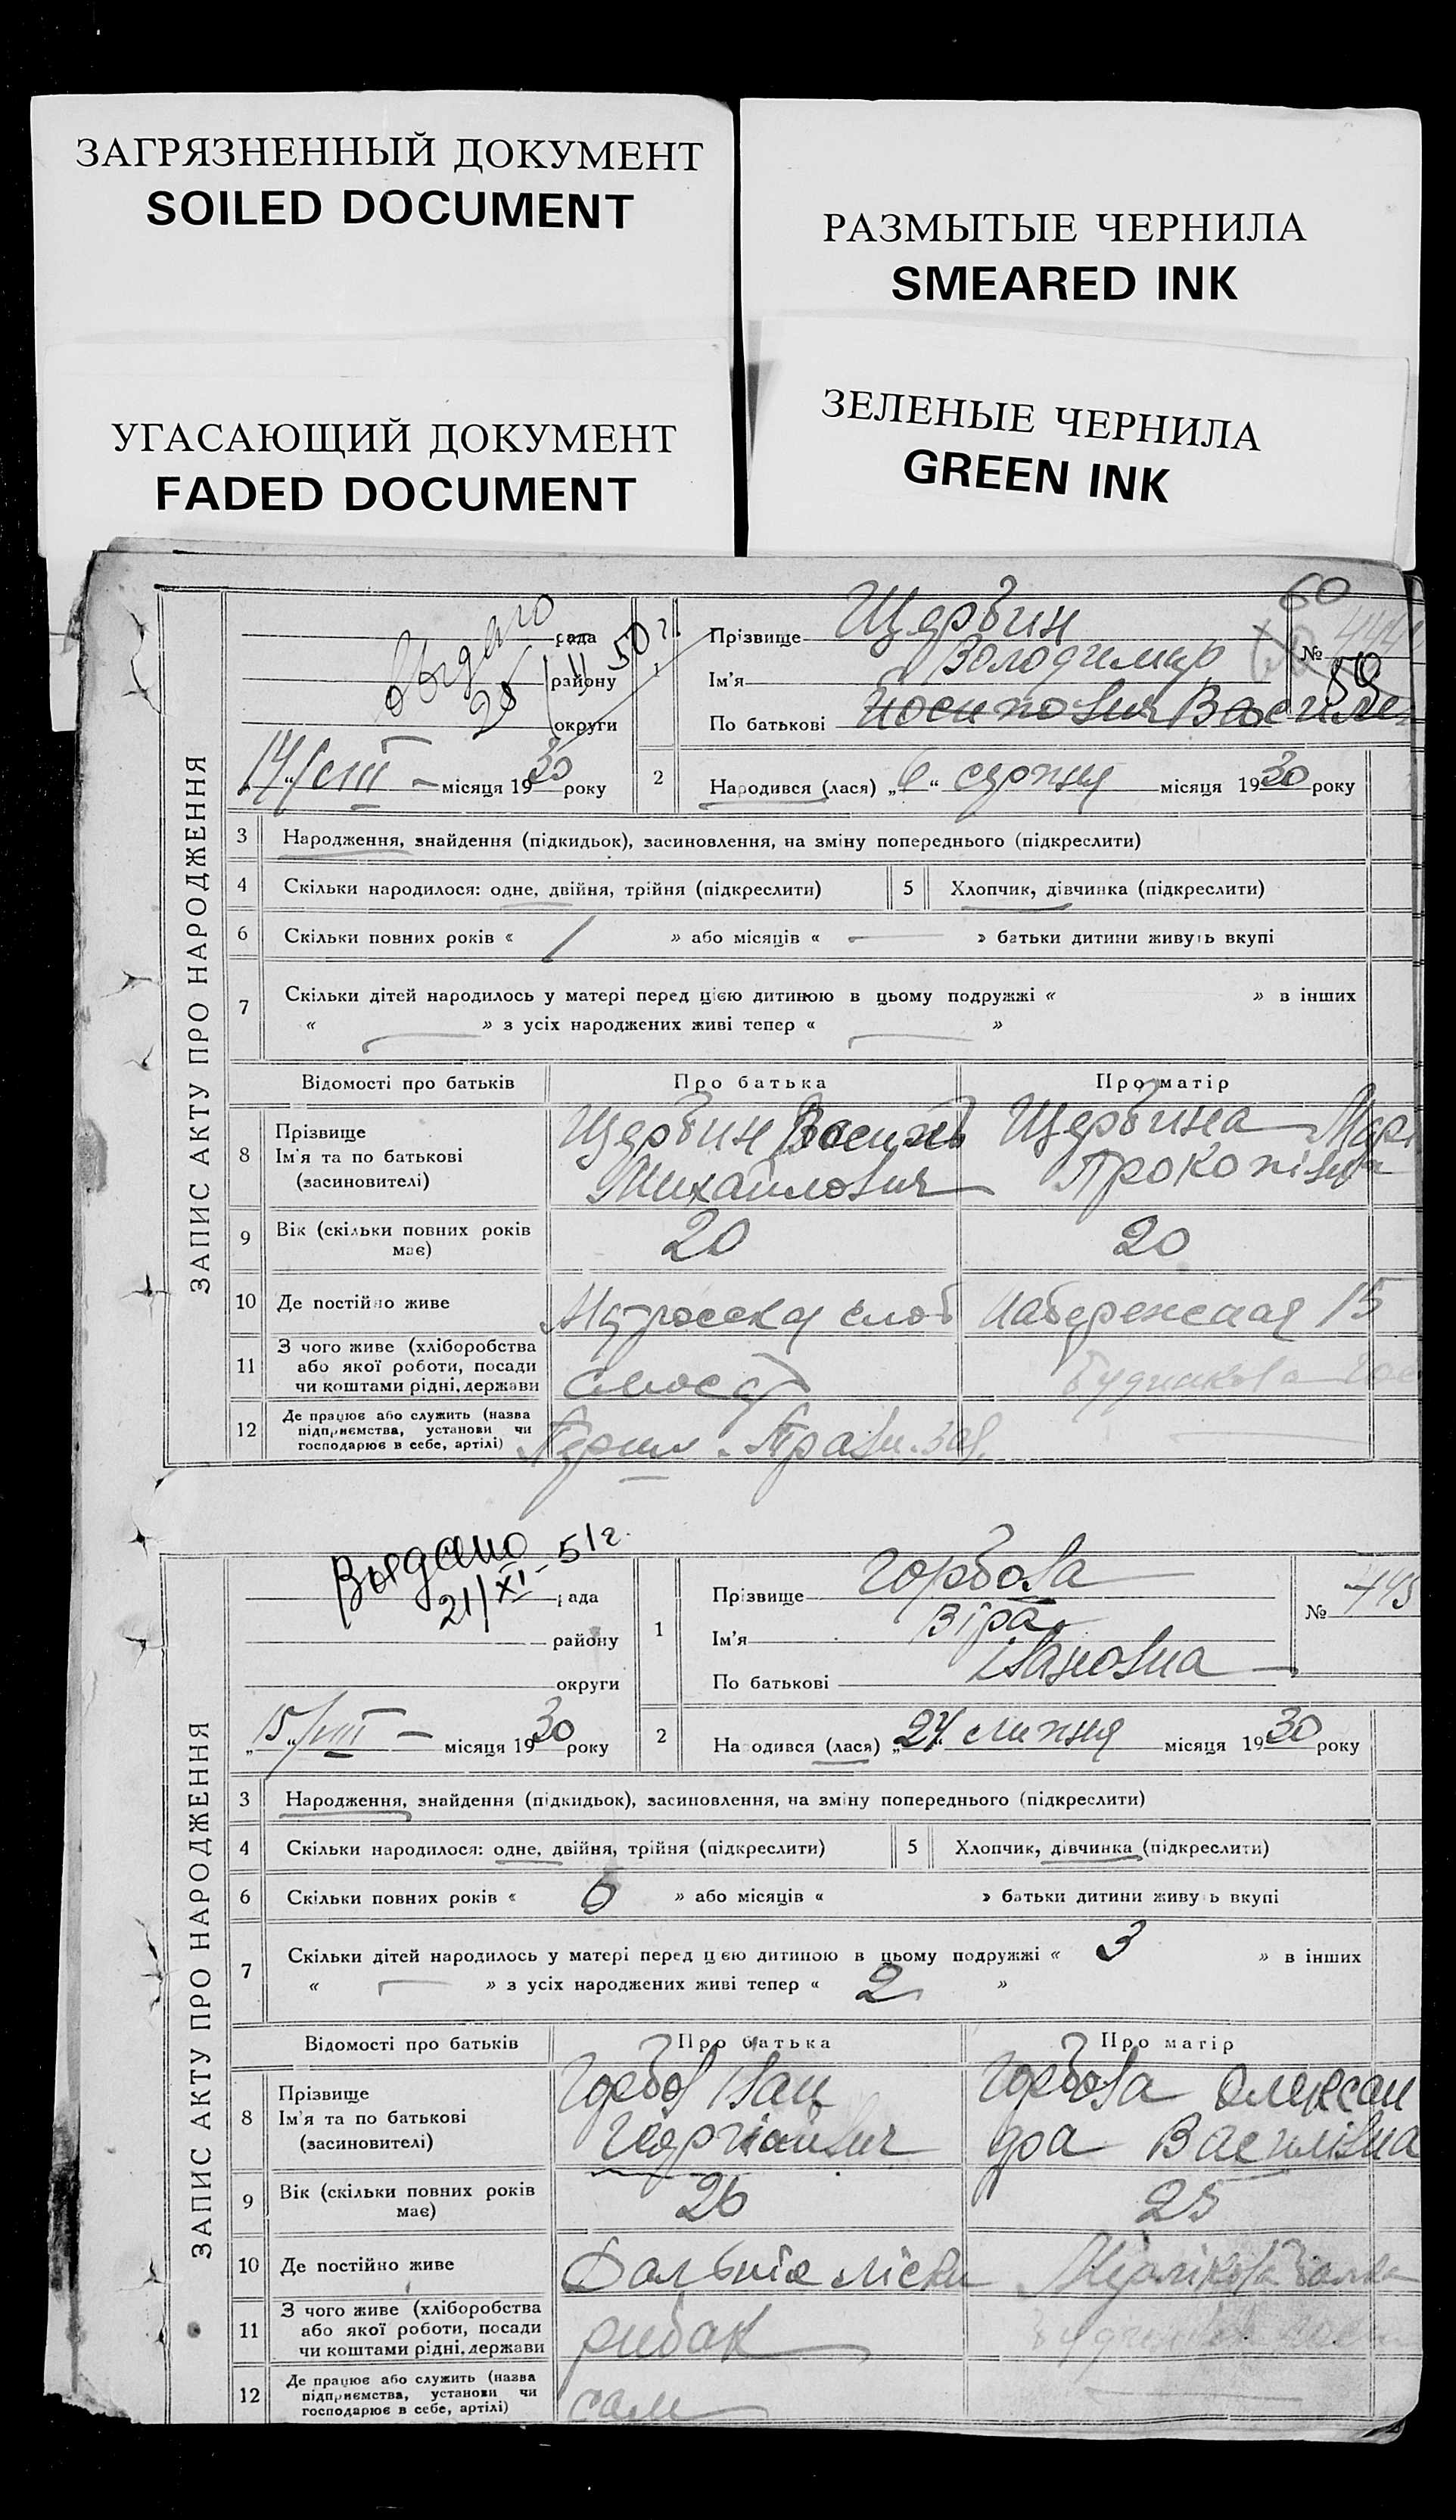 ЗАГРЯЗНЕННЫЙ ДОКУМЕНТ
SOILED DOCUMENT
РАЗМЫТЫЕ ЧЕРНИЛА
SMEARED INK
УГАСАЮЩИЙ ДОКУМЕНТ
FADED DOCUMENT
ЗЕЛЕНЫЕ ЧЕРНИЛА
GREEN INK
ЗАПИС АКТУ ПРО НАРОДЖЕННЯ
Выдано
50 г.
сада
району
округи
14/VIII — місяця 1930 року
1
Прізвище Щербин
Ім'я Володимир
По батькові Йосипович Василе
60
№
59
2
Народився (лася) „6“ серпня місяця 1930 року
3 Народження, знайдення (підкидьок), засиновлення, на зміну попереднього (підкреслити)
4 Скільки народилося: одне, двійня, трійня (підкреслити) 5 Хлопчик, дівчинка (підкреслити)
6 Скільки повних років « 1 » або місяців « — » батьки дитини живуть вкупі
7 Скільки дітей народилось у матері перед цією дитиною в цьому подружжі « » в інших
« — » з усіх народжених живі тепер « — »
Відомості про батьків Про батька Про матір
8 Прізвище Ім'я та по батькові (засновителі)
Щербин Василь Михайлович
Щербина Марі Прокопівна
9 Вік (скільки повних років має) 20 20
10 Де постійно живе слоб 15
11 З чого живе (хліборобства або якої роботи, посади чи коштами рідні, держави
12 Де працює або служить (назва підприємства, установи чи господарює в себе, артілі)
ЗАПИС АКТУ ПРО НАРОДЖЕННЯ
Выдано
21/XI-51г.
рада
району
округи
15/VIII — місяця 1930 року
1
Прізвище Горбова
Ім'я Віра
По батькові Івановна
№ 445
2
На одився (лася) „24“ липня місяця 1930 року
3 Народження, знайдення (підкидьок), засиновлення, на зміну попереднього (підкреслити)
4 Скільки народилося: одне, двійня, трійня (підкреслити) 5 Хлопчик, дівчинка (підкреслити)
6 Скільки повних років « 6 » або місяців « » батьки дитини живу ь вкупі
7 Скільки дітей народилось у матері перед цією дитиною в цьому подружжі « 3 » в інших
« — » з усіх народжених живі тепер « 2 »
Відомості про батьків Про батька Про матір
8 Прізвище Ім'я та по батькові (засиновителі)
Горбов Іван
Горбова Олексан
дра Василівна
9 Вік (скільки повних років має) 26 25
10 Де постійно живе Дальніе
11 З чого живе (хліборобства або якої роботи, посади чи коштами рідні, держави рибак
12 Де працює або служить (назва підприємства, установи чи господарює в себе, артілі) сам